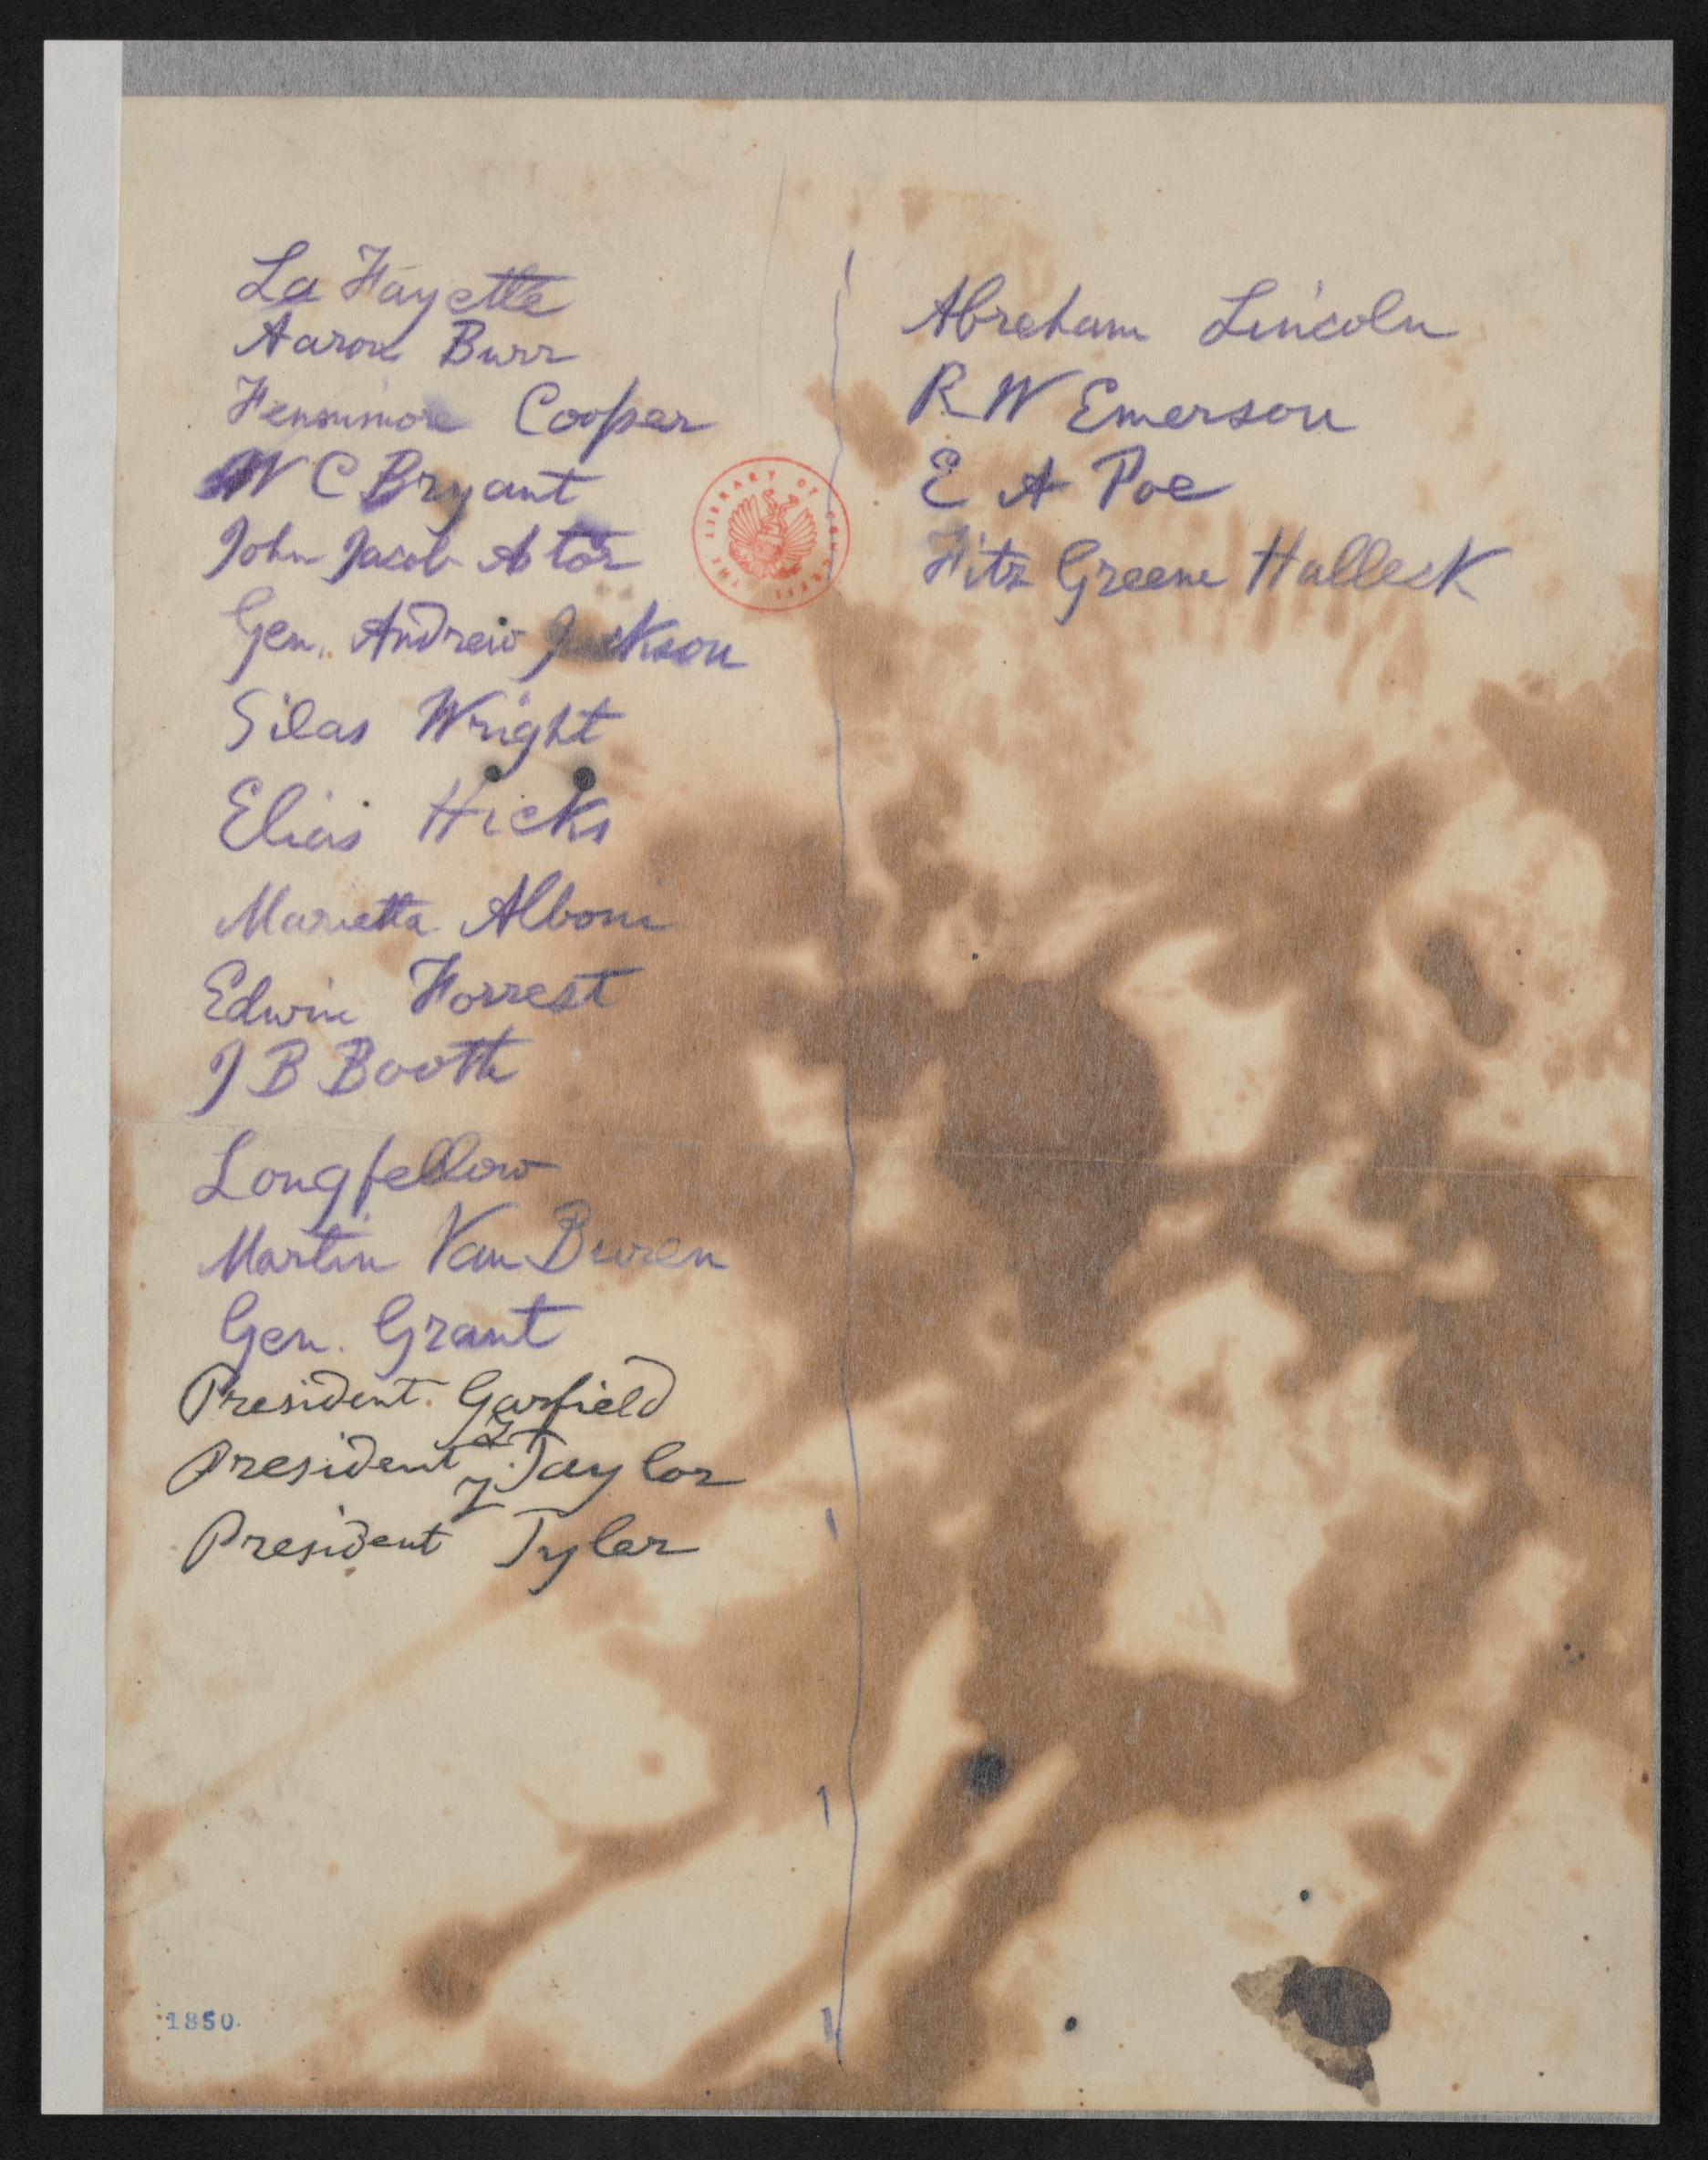 La Fayette
Aaron Burr
Fennimore Cooper
W C Bryant
John Jacob Astor
Gen. Andrew Jackson
Silas Wright
Elias Hicks
Marietta Alboni
Edwin Forrest
J B Booth
Longfellow
Martin Van Buren
Gen. Grant
President Garfield
President Z. Taylor
President Tyler
Abreham Lincoln
R W Emerson
E A Poe
Fitz Greene Halleck
THE LIBRARY OF CONGRESS
1850